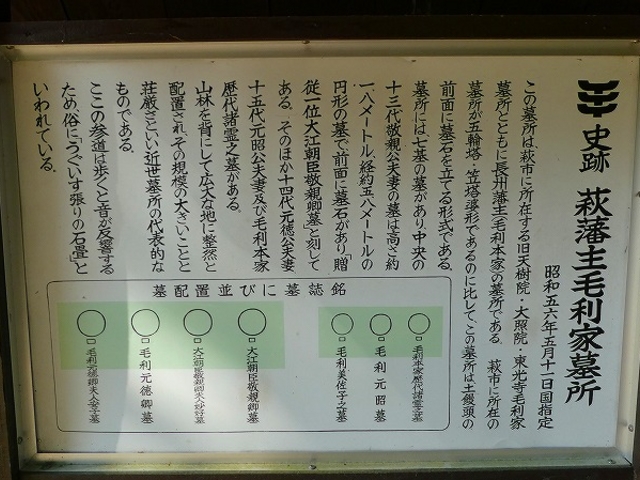 史跡 萩藩主毛利家墓所
昭和五六年五月十一日国指定
この墓所は、萩市に所在する旧天樹院・大照院・東光寺毛利家
墓所とともに長州藩主(毛利本家)の墓所である。萩市に所在の
墓所が五輪塔・笠塔婆形であるのに比して、この墓所は土饅頭の
前面に墓石を立てる形式である。
墓所には七基の墓があり、中央の
十三代敬親公夫妻の墓は高さ約
一・八メートル経約五・八メートルの
円形の墓で、前面に墓石があり「贈
従一位大江朝臣敬親卿墓」と刻して
ある。そのほか十四代元徳公夫妻
十五代元昭公夫妻及び毛利本家
歴代諸霊之墓がある。
山林を背にして広大な地に整然と
配置され、その規模の大きいことと
荘厳さといい近世墓所の代表的な
ものである。
ここの参道は歩くと音が反響する
ため俗に「うぐいす張りの石畳」と
いわれている。
墓配置並びに墓誌銘
毛利本家歴代諸霊之墓
毛利元昭墓
毛利美佐子之墓
大江朝臣敬親卿墓
大江朝臣敬親卿夫人妙好墓
毛利元徳卿墓
毛利元徳卿夫人安子墓